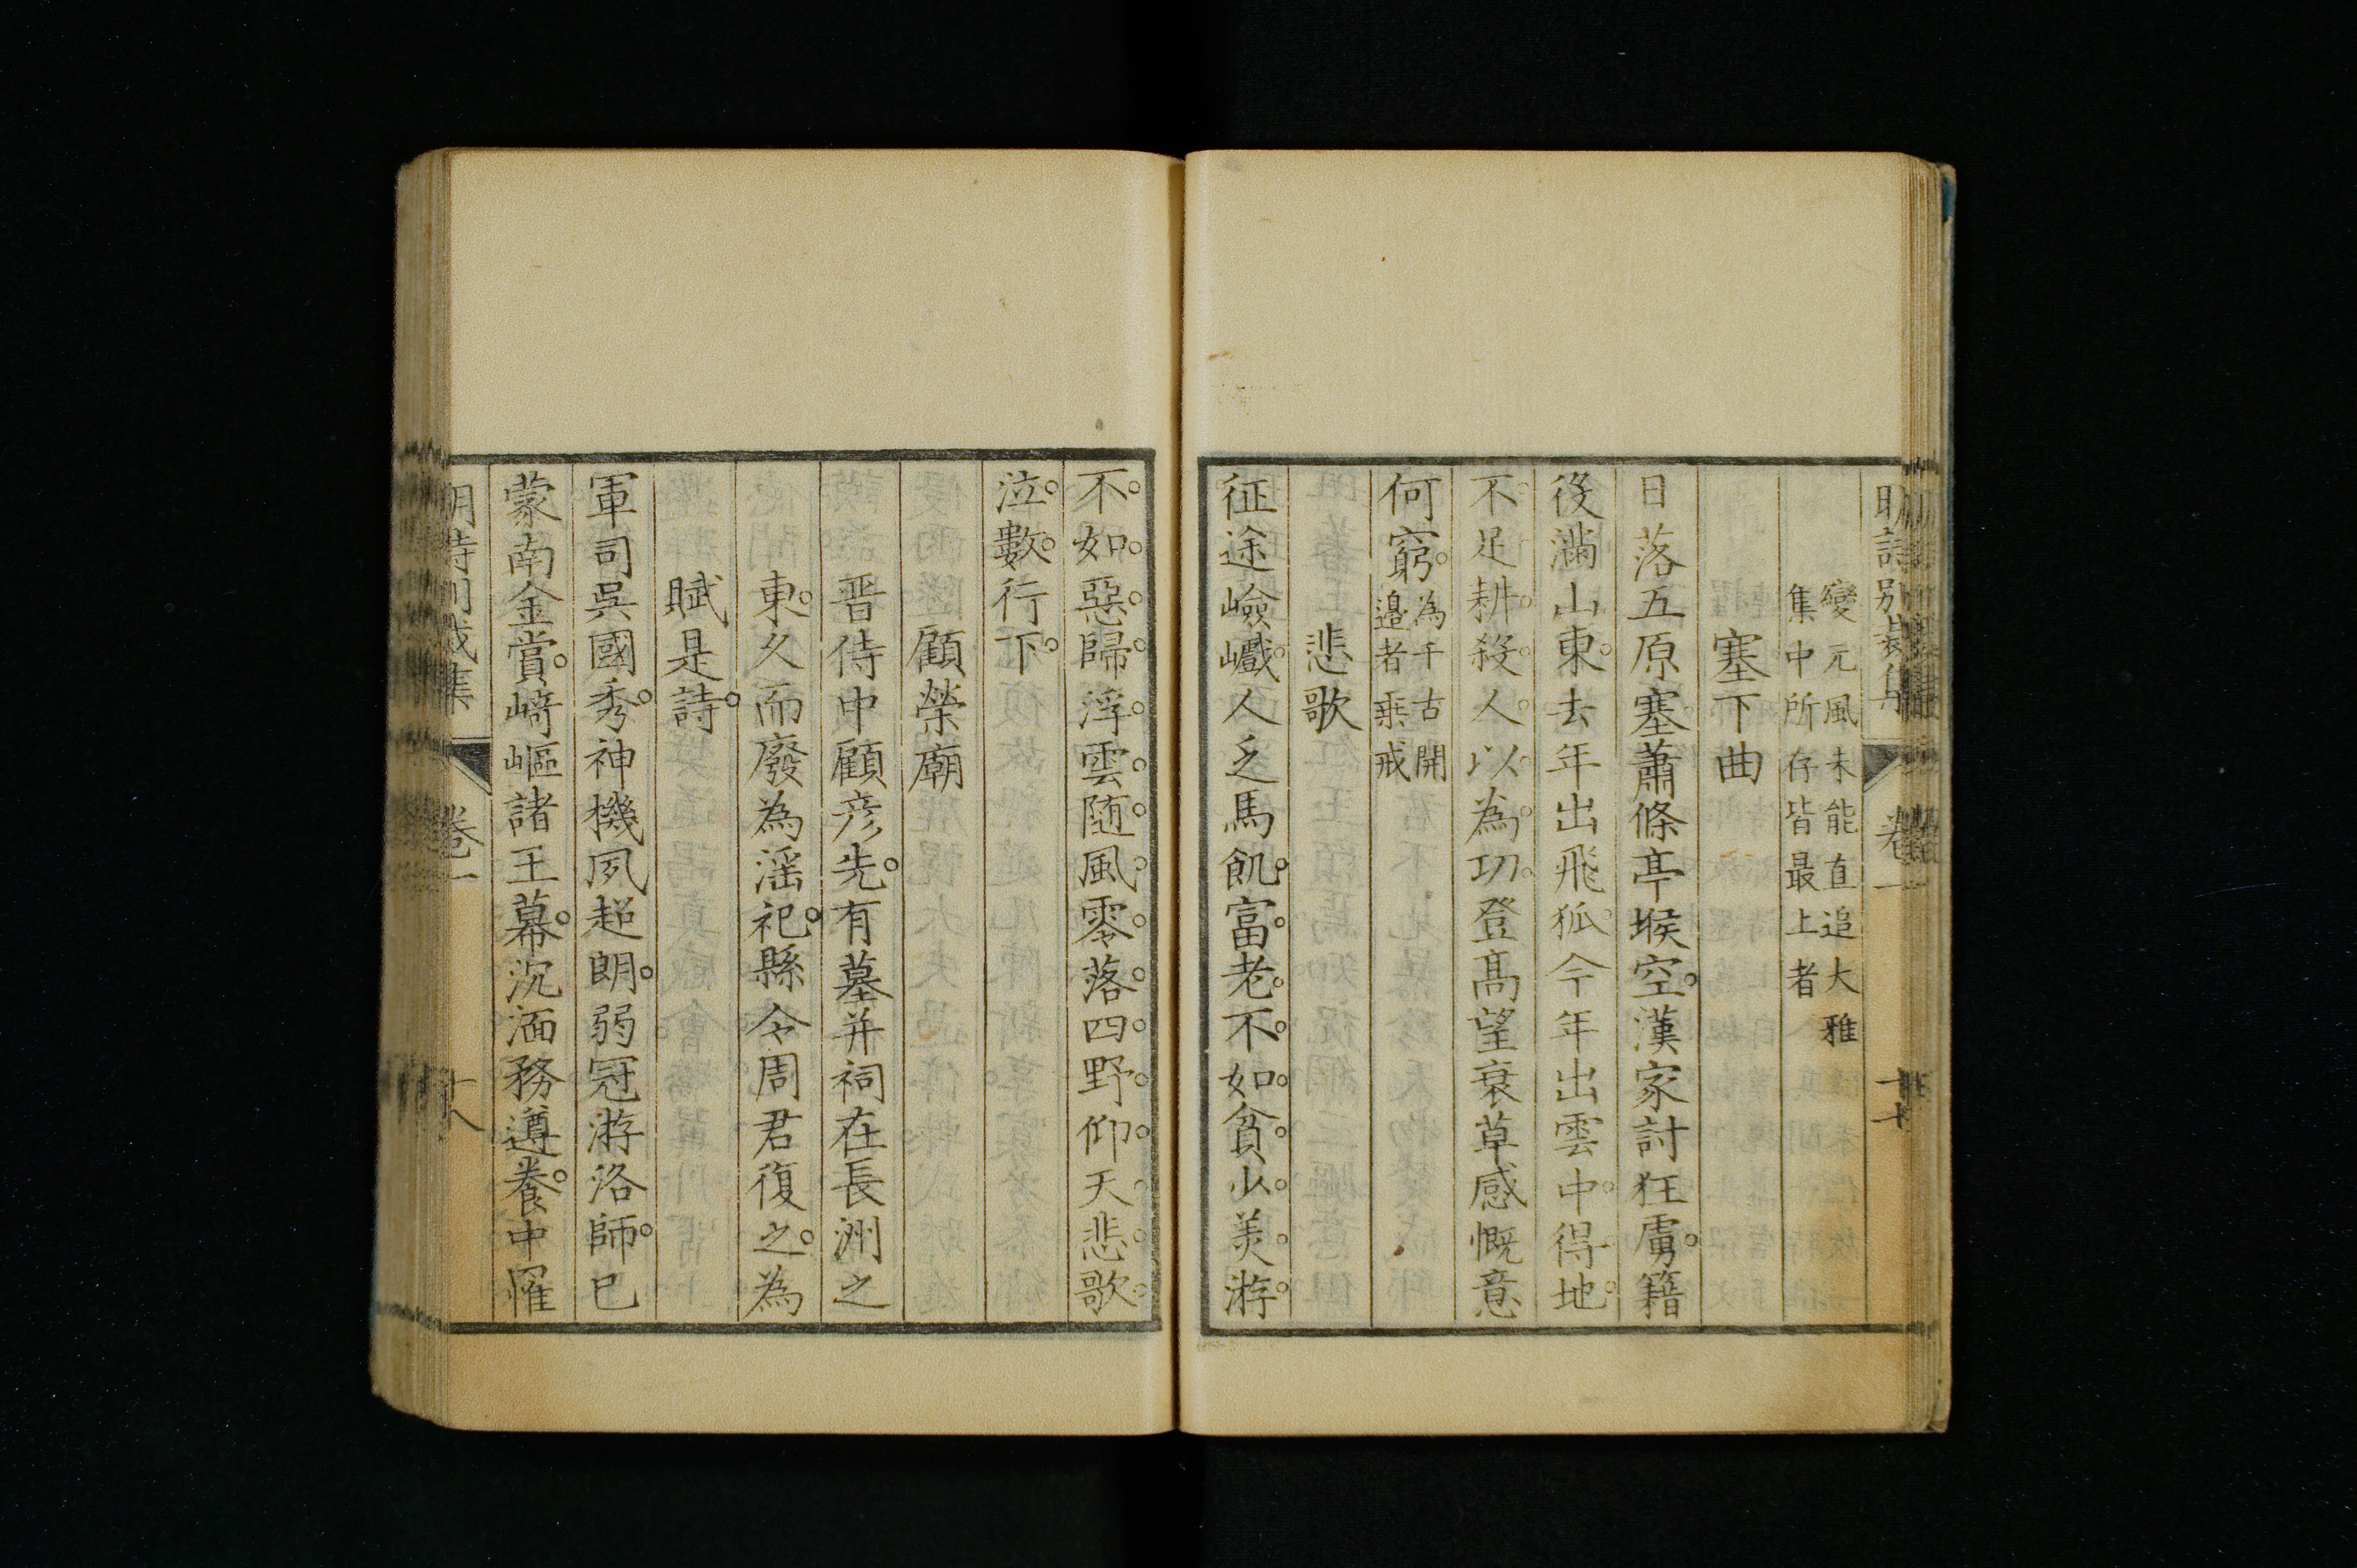 明詩別裁集 卷一 十七
變元風未能直追大雅
集中所存皆最上者
塞下曲
日落五原塞蕭條亭堠空漢家討狂虜籍
役滿山東去年出飛狐今年出雲中得地
不足耕殺人以為功登高望衰草感慨意
何窮為千古開
邉者垂戒
悲歌
征途嶮巇人乏馬飢富老不如貧少美游
不如惡歸浮雲随風零落四野仰天悲歌
泣數行下
顧榮廟
晋侍中顧彦先有墓并祠在長洲之
東久而廢為滛祀縣令周君復之為
賦是詩
軍司吳國秀神機夙超朗弱冠游洛師已
蒙南金賞崎嶇諸王幕沉湎務遵養中罹
明詩別裁集 卷一 十八